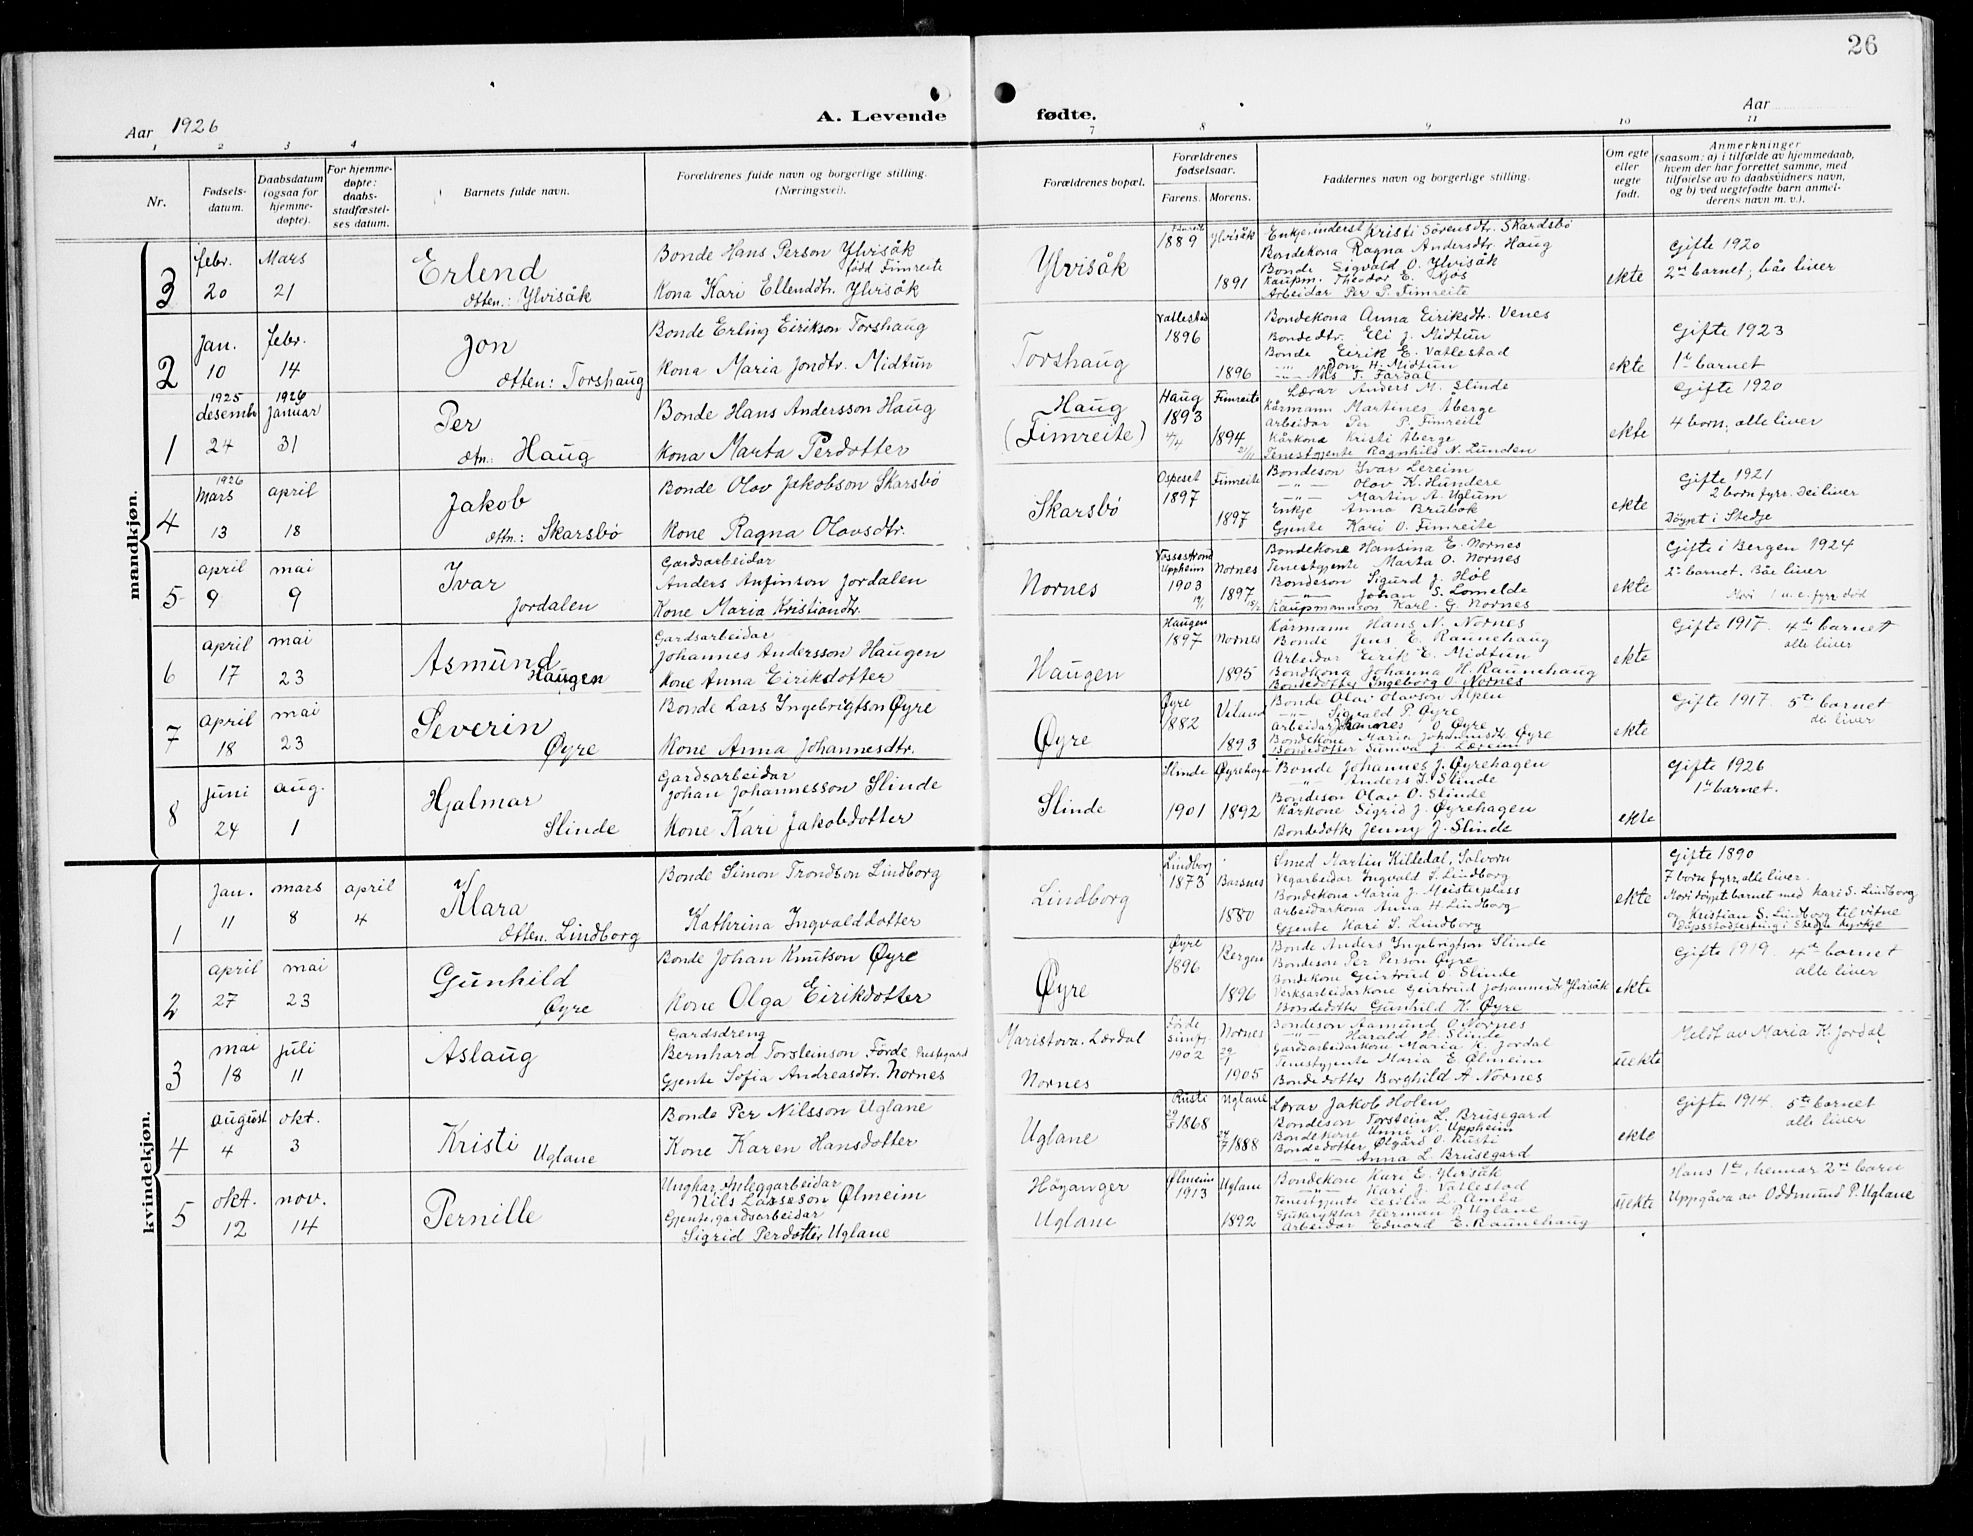 26
Aar 1926
A. Levende fødte.
Aar
1 2 3 4 7 8 9 10 11
Nr.
Fødsels-
datum.
Daabsdatum
(ogsaa for
hjemme-
døpte).
For hjemme-
døpte:
daabs-
stadfæstel-
ses datum.
Barnets fulde navn.
Forældrenes fulde navn og borgerlige stilling.
(Næringsvei).
Forældrenes bopæl.
Forældrenes
fødselsaar.
Farens. Morens.
Faddernes navn og borgerlige stilling.
Om egte
eller
uegte
født.
Anmerkninger
(saasom: a) i tilfælde av hjemmedaab,
hvem der har forrettet samme, med
tilføielse av to daabsvidners navn,
og b) ved uegtefødte barn anmel-
derens navn m. v.).
mandkjøn.
3
febr.
20
Mars
21
Erlend
Ætten.: Ylvisåk
Bonde Hans Person Ylvisåk
född Fimreite
Kona Kari Ellendtr. Ylvisåk
Ylvisåk
Fimreite
1889
Ylvisåk
1891
Enkje, inderst Kristi Sörensdtr. Skardsbö
Bondekona Ragna Andersdtr. Haug
Bonde Sigvald O. Ylvisåk
Kaupm. Theodor E. Kjos
Arbeidar Per P. Fimreite
ekte
Gifte 1920
2re barnet, båe liver
2
Jan.
10
febr.
14
Jon
Ætten: Torshaug
Bonde Erling Eirikson Torshaug
Kona Maria Jondtr. Midtun
Torshaug
Vatlestad
1896
1896
Bondekona Anna Eiriksdtr. Venes
Bondedtr. Eli J. Midtun
Bonde Eirik E. Vatlestad
" Jon H. Midtun
" Nils T. Fardal
ekte
Gifte 1923
1te barnet
1
1925
desembr
24
1926
Januar
31
Per
Ætn: Haug
Bonde Hans Andersson Haug
Kona Marta Perdotter
Haug
(Fimreite)
Haug
1893
4/4
Fimreite
1894
21/11
Lærar Anders M. Slinde
Kårmann Martines Åberge
Arbeidar Per P. Fimreite
Kårkona Kristi Åberge
Tenestgjente Ragnhild N. Lunden
ekte
Gifte 1920
4 born, alle liver
4
1926
Mars
13
april
18
Jakob
Ættn.: Skarsbö
Bonde Olov Jakobson Skarsbö
Kone Ragna Olovsdtr.
Skarsbö
Ospeset
1897
Fimreite
1897
Bondeson Ivar Lereim
" Olov K. Hundere
" Martin A. Uglum
Enkje Anna Brubok
Gjente Kari O. Fimreite
ekte
Gifte 1921
2 born fyrr. Dei liver
Döypt i Stedje
5
april
9
mai
9
Ivar
Jordalen
Gardsarbeidar
Anders Anfinson Jordalen
Kone Maria Kristiandtr.
Nornes
Vossestrond
Uppheim
1903
19/1
Nornes
1897
15/2
Bondekone Hansina E. Nornes
Tenestgjente Marta O. Nornes
Bondeson Sigurd J. Hol
" Johan S. Lomelde
Kaupmannson Karl G. Nornes
ekte
Gifte i Bergen 1924
2re barnet. Båe liver
Mori 1 u.e. fyrr, död
6
april
17
mai
23
Asmund
Haugen
Gardsarbeidar
Johannes Andersson Haugen
Kone Anna Eiriksdotter
Haugen
Haugen
1897
Nornes
1895
Kårmann Hans N. Nornes
Bonde Jens E. Raunehaug
Arbeidar Eirik E. Midtun
Bondkona Johanna H. Raunehaug
Bondedotter Ingeborg O. Nornes
ekte
Gifte 1917. 4de barnet
alle liver
7
April
18
mai
23
Severin
Øyre
Bonde Lars Ingebrigtson Øyre
Kone Anna Johannesdtr.
Øyre
Øyre
1882
1893
Bonde Olav Olavson Alpen
" Sigvald P. Øyre
Arbeidar Hannes O. Øyre
Bondekone Maria Johannisdtr. Øyre
Bondedotter Suniva J. Læreim
ekte
Gifte 1917. 5te barnet
dei liver
8
juni
24
aug.
1
Hjalmar
Slinde
Gardsarbeidar
Johan Johannesson Slinde
Kone Kari Jakobdotter
Slinde
Slinde
1901
Øyrehage
1892
Bonde Johannes J. Øyrehagen
" Anders I. Slinde
Bondeson Olav O. Slinde
Kårkone Sigrid J. Øyrehagen
Bondedotter Jenny J. Slinde
ekte
Gifte 1926
1te barnet.
kvindekjøn.
1
Jan.
11
mars
8
april
4
Klara
Ætten. Lindborg
Bonde Simon Trondson Lindborg
Kathrina Ingvalddotter
Lindborg
Lindborg
1873
Barsnes
1880
Smed Martin Killedal, Solvorn
Vegarbeidar Ingvald S. Lindborg
Bondekona Maria J. Meisterplass
Arbeidarkona Anna H. Lindborg
Gjente Kari S. Lindborg
ekte
Gifte 1890
7 born fyrr, alle liver.
Mori döypt barnet med Kari S. Lindborg
og Kristian S. Lindborg til vitne
Dåpsstadfesting i Stedje kyrkje
2
april
27
mai
23
Gunhild
Øyre
Bonde Johan Knutson Øyre
Kone Olga Eirikdotter
Øyre
Øyre
1896
Bergen
1896
Bonde Anders Ingebrigtson Slinde
Bondeson Per Person Øyre
Bondekone Geirtrud O. Slinde
Verksarbeidarkone Geirtrud Johannesdtr Ylvisåk
Bondedotter Gunhild K. Øyre
ekte
Gifte 1919. 4de barnet
alle liver
3
mai
18
juli
11
Aslaug
Gardsdreng
Bernhard Torsteinson Förde
Gjente Sofia Andreasdtr. Nornes
Maristova. Lærdal
Nornes
Förde
Sunfj.
1902
Nornes
29/1
1905
Bondeson Aamund O. Nornes
" Harald H. Slinde
Gardsarbeidarkone Maria K. Jordal
Tenestgjente Maria E. Ølmeim
Bondedotter Borghild A. Nornes
uekte
Meldt av Maria K. Jordal
4
august
4
okt.
3
Kristi
Uglane
Bonde Per Nilsson Uglane
Kone Karen Hansdotter
Uglane
Rusti
29/5 1868
Uglane
24/7 1888
Lærar Jakob Holen
Bondeson Torstein L. Brusegard
Bondekone Anni N. Uppheim
Bondedotter Ølgård O. Rusti
" Anna L. Brusegard
ekte
Gifte 1914. 5te barnet
alle liver
5
okt.
12
nov.
14
Pernille
Ungkar, anleggarbeidar
Nils Lasseson Ølmeim
Gjente, gardsarbeidar
Sigrid Perdotter Uglane
Höyanger
Uglane
Ølmeim
1913
Uglane
1892
Bondekone Kari E. Ylvisåk
" Kari J. Vatlestad
Tenestgjente Cesilia L. Amla
Sjukryktar Herman P. Uglane
Arbeidar Edvard E. Raunehaug
uekte
Hans 1te, hennar 2re barn
Uppgåva av Oddmund P. Uglane